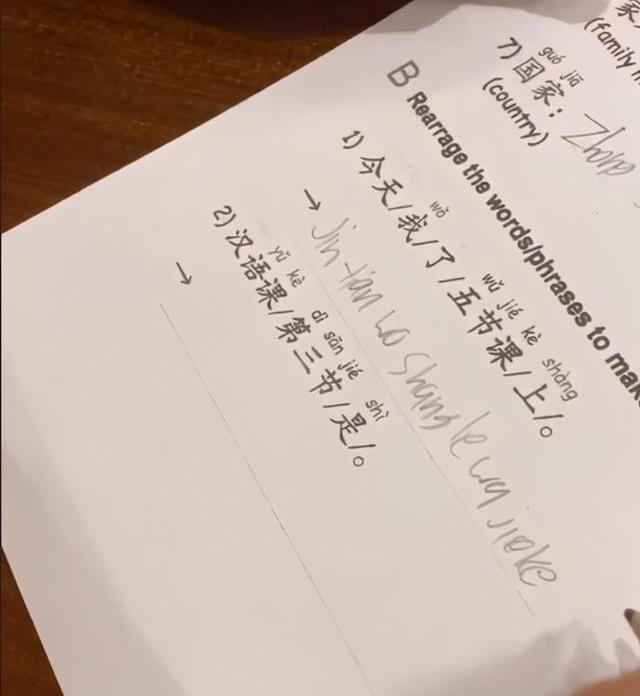 家
(family
guó jiā
7) 国家：
(country)
B Rearrage the words/phrases to mak
wǒ wǔ jié kè shàng
1) 今天/我/了/五节课/上/。
→ Jin tian wo shang le wu jie ke
yǔ kè dì sān jié shì
2) 汉语课/第三节/是/。
→